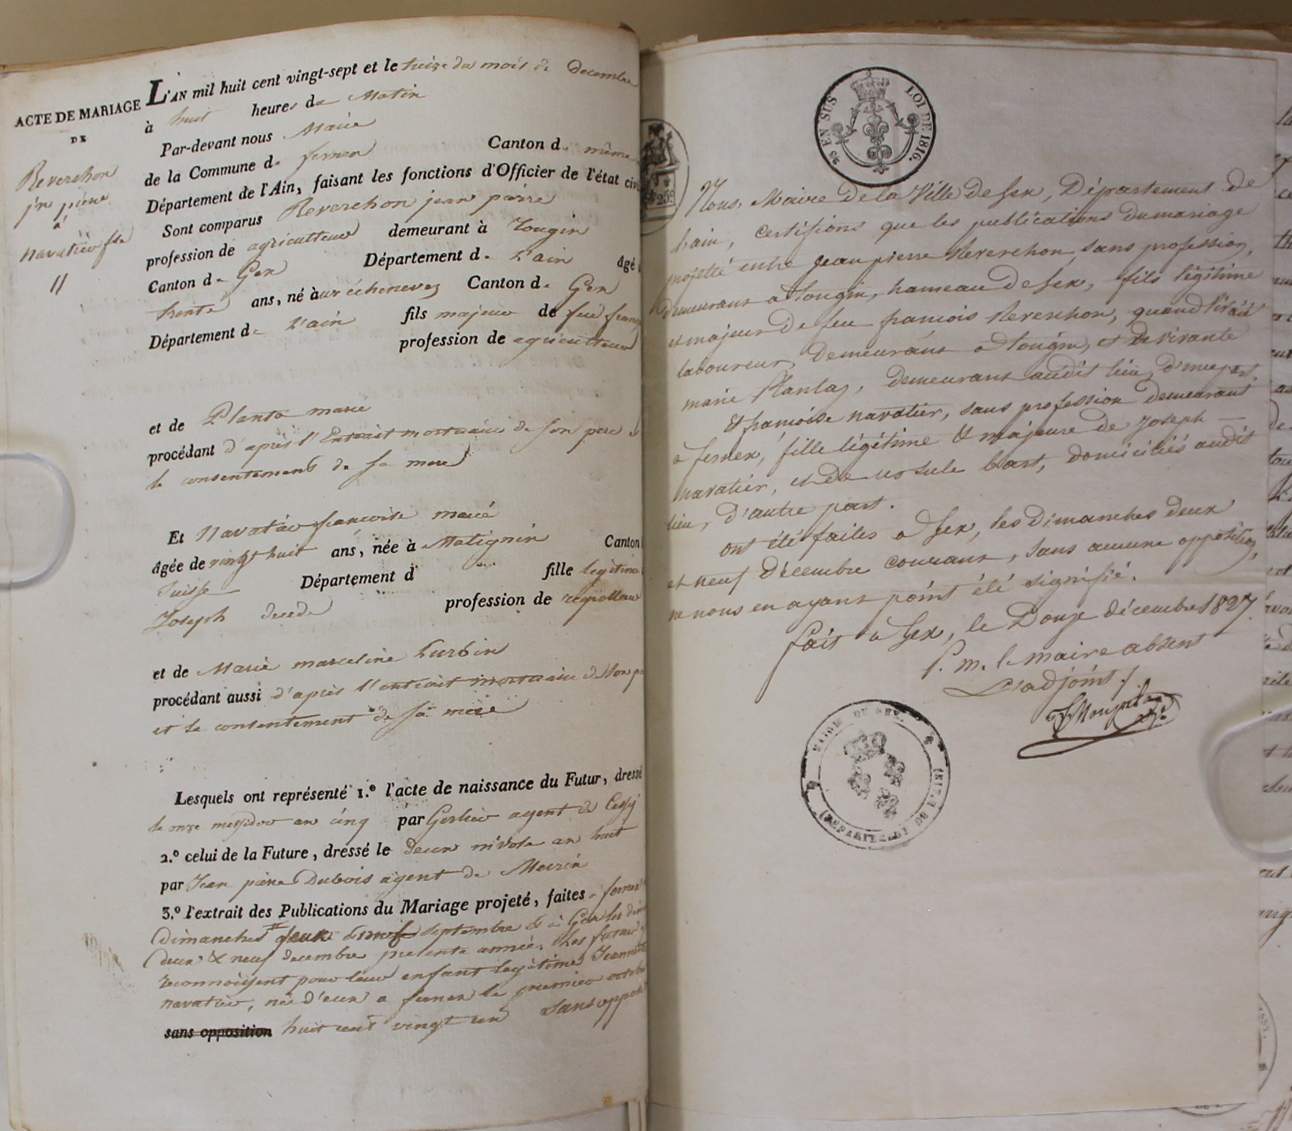 ACTE DE MARIAGE
DE
Reverchon
jn piere
à
navatier fse
L'AN mil huit cent vingt-sept et le treize du mois de Decembre
à huit heures du Matin
Par-devant nous Maire
de la Commune de ferney Canton de même
Département de l'Ain, faisant les fonctions d'Officier de l'état civ
Sont comparus Reverchon jean pierre
profession de agriculteur demeurant à Tougin
Canton de Gex Département de L'ain âgé
trente ans, né à Canton de Gex
Département de L'ain fils majeur de feu
profession de agriculteur
et de Planta marie
procédant d'après l'Extrait mortuaire de son pere
le consentement de sa mere
Et Navatier francoise marie
âgée de vingt huit ans, née à Matignin Canton
Suisse Département d fille legitime
Joseph profession de
et de Marie marceline
procédant aussi d'après l'extrait mortuaire de son
et le consentement de sa mere
Lesquels ont représenté 1.º l'acte de naissance du Futur, dressé
le onze messidor an cinq par agent de Cessy
2.º celui de la Future, dressé le deux nivose an huit
par Jean piere Dubois agent de Meirin
3.º l'extrait des Publications du Mariage projeté, faites a
Dimanches septembre & à Gex les
deux & neuf decembre presente année. Les futurs
reconnoissent pour leur enfant legitime
navatier, née d'eux a ferney le premier octobre
sans opposition huit cent vingt un sans
25 EN SUS
LOI DE 1816.
Nous, Maire de la Ville de Gex, Département de
l'ain, certifions que les publications du mariage
projetté entre Jean pierre Reverchon, sans profession,
demeurant a tougin, hameau de Gex, fils légitime
et majeur de feu francois Reverchon, quand vivait
laboureur, demeurant a tougin, et de vivante
marie Plantaz, demeurant audit lieu, d'une part,
Et francoise navatier, sans profession demeurant
a fernex, fille légitime & majeure de Joseph
navatier, et de ursule bart, domiciliés audit
lieu, d'autre part.
ont été faites a Gex, les dimanches deux
et neuf décembre courant, sans aucune opposition,
ne nous en ayant point été signifié.
fait a Gex, le Douze décembre 1827.
P. m. le maire absent
L'adjoint
MAIRIE DE GEX.
(DÉPARTEMENT DE L'AIN)